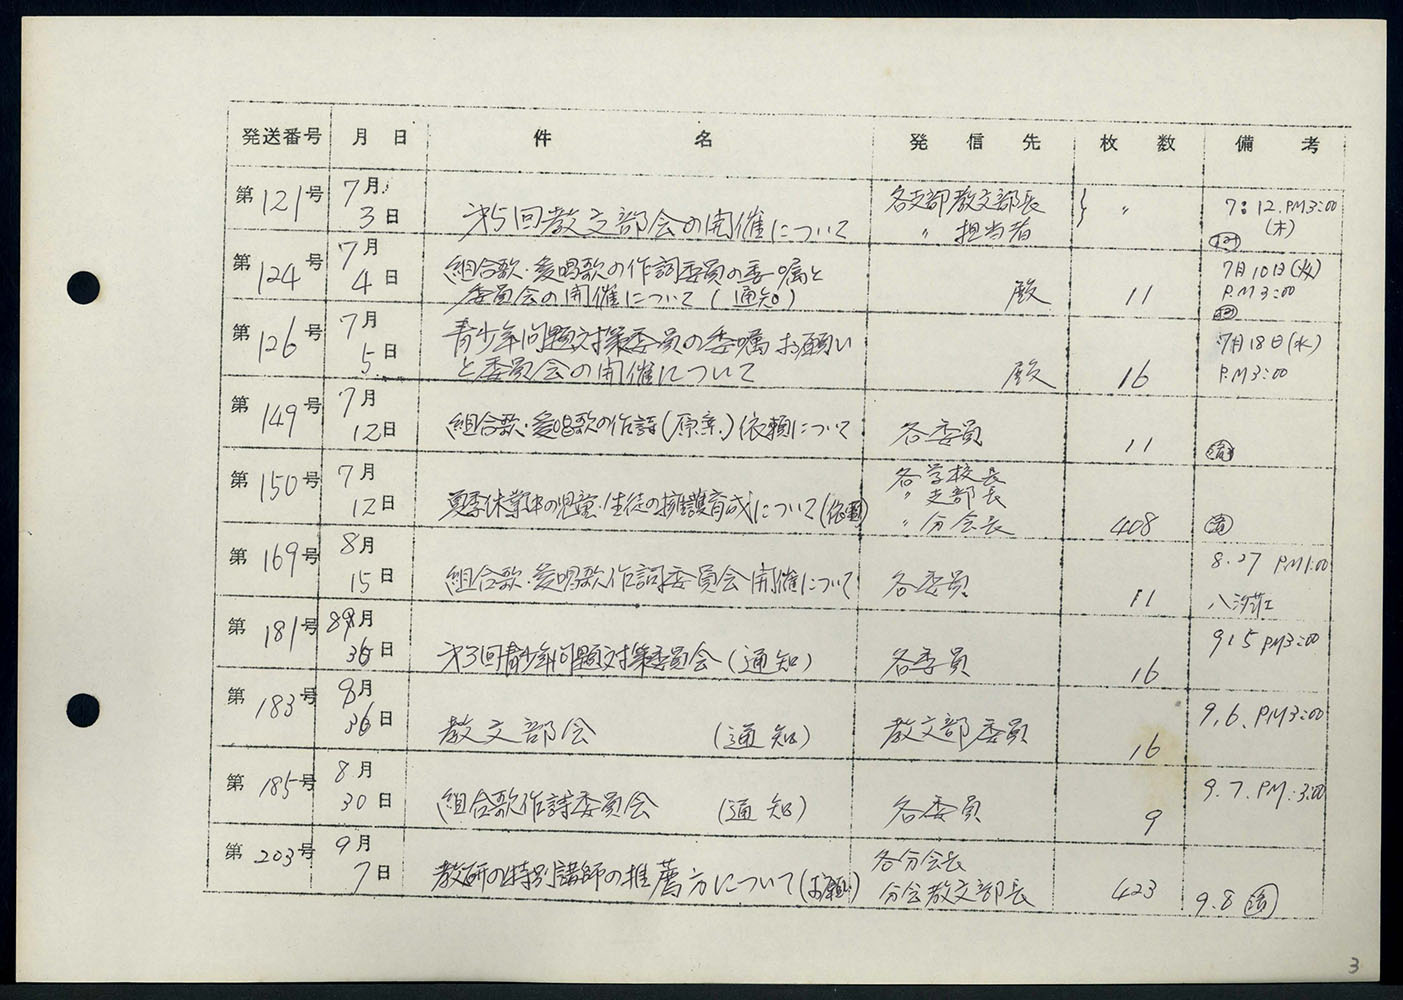 発送番号 月 日 件 名 発 信 先 枚 数 備 考
第121号 7月3日 第5回教文部会の開催について 各支部教文部長 } 〃 7:12.PM3:00
〃 担当者 (木)
第124号 7月4日 組合歌・愛唱歌の作詞委員の委嘱と 7月10日(火)
委員会の開催について(通知) 殿 11 P.M3:00
第126号 7月5日 青少年問題対策委員の委嘱お願い 7月18日(水)
と委員会の開催について 殿 16 P.M3:00
第149号 7月12日 組合歌・愛唱歌の作詩(原案)依頼について 各委員 11 済
第150号 7月12日 夏季休業中の児童・生徒の擁護育成について(依頼) 各学校長
〃 支部長
〃 分会長 408 済
第169号 8月15日 組合歌・愛唱歌作詞委員会開催について 各委員 11 8.27 PM1:00
八汐荘
第181号 8月30日 第3回青少年問題対策委員会(通知) 各委員 16 9.5 PM3:00
第183号 8月30日 教文部会 (通知) 教文部委員 16 9.6.PM3:00
第185号 8月30日 組合歌作詩委員会 (通知) 各委員 9 9.7.PM.3:00
第203号 9月7日 教研の特別講師の推薦方について(お願い) 各分会長
分会教文部長 423 9.8 済
3